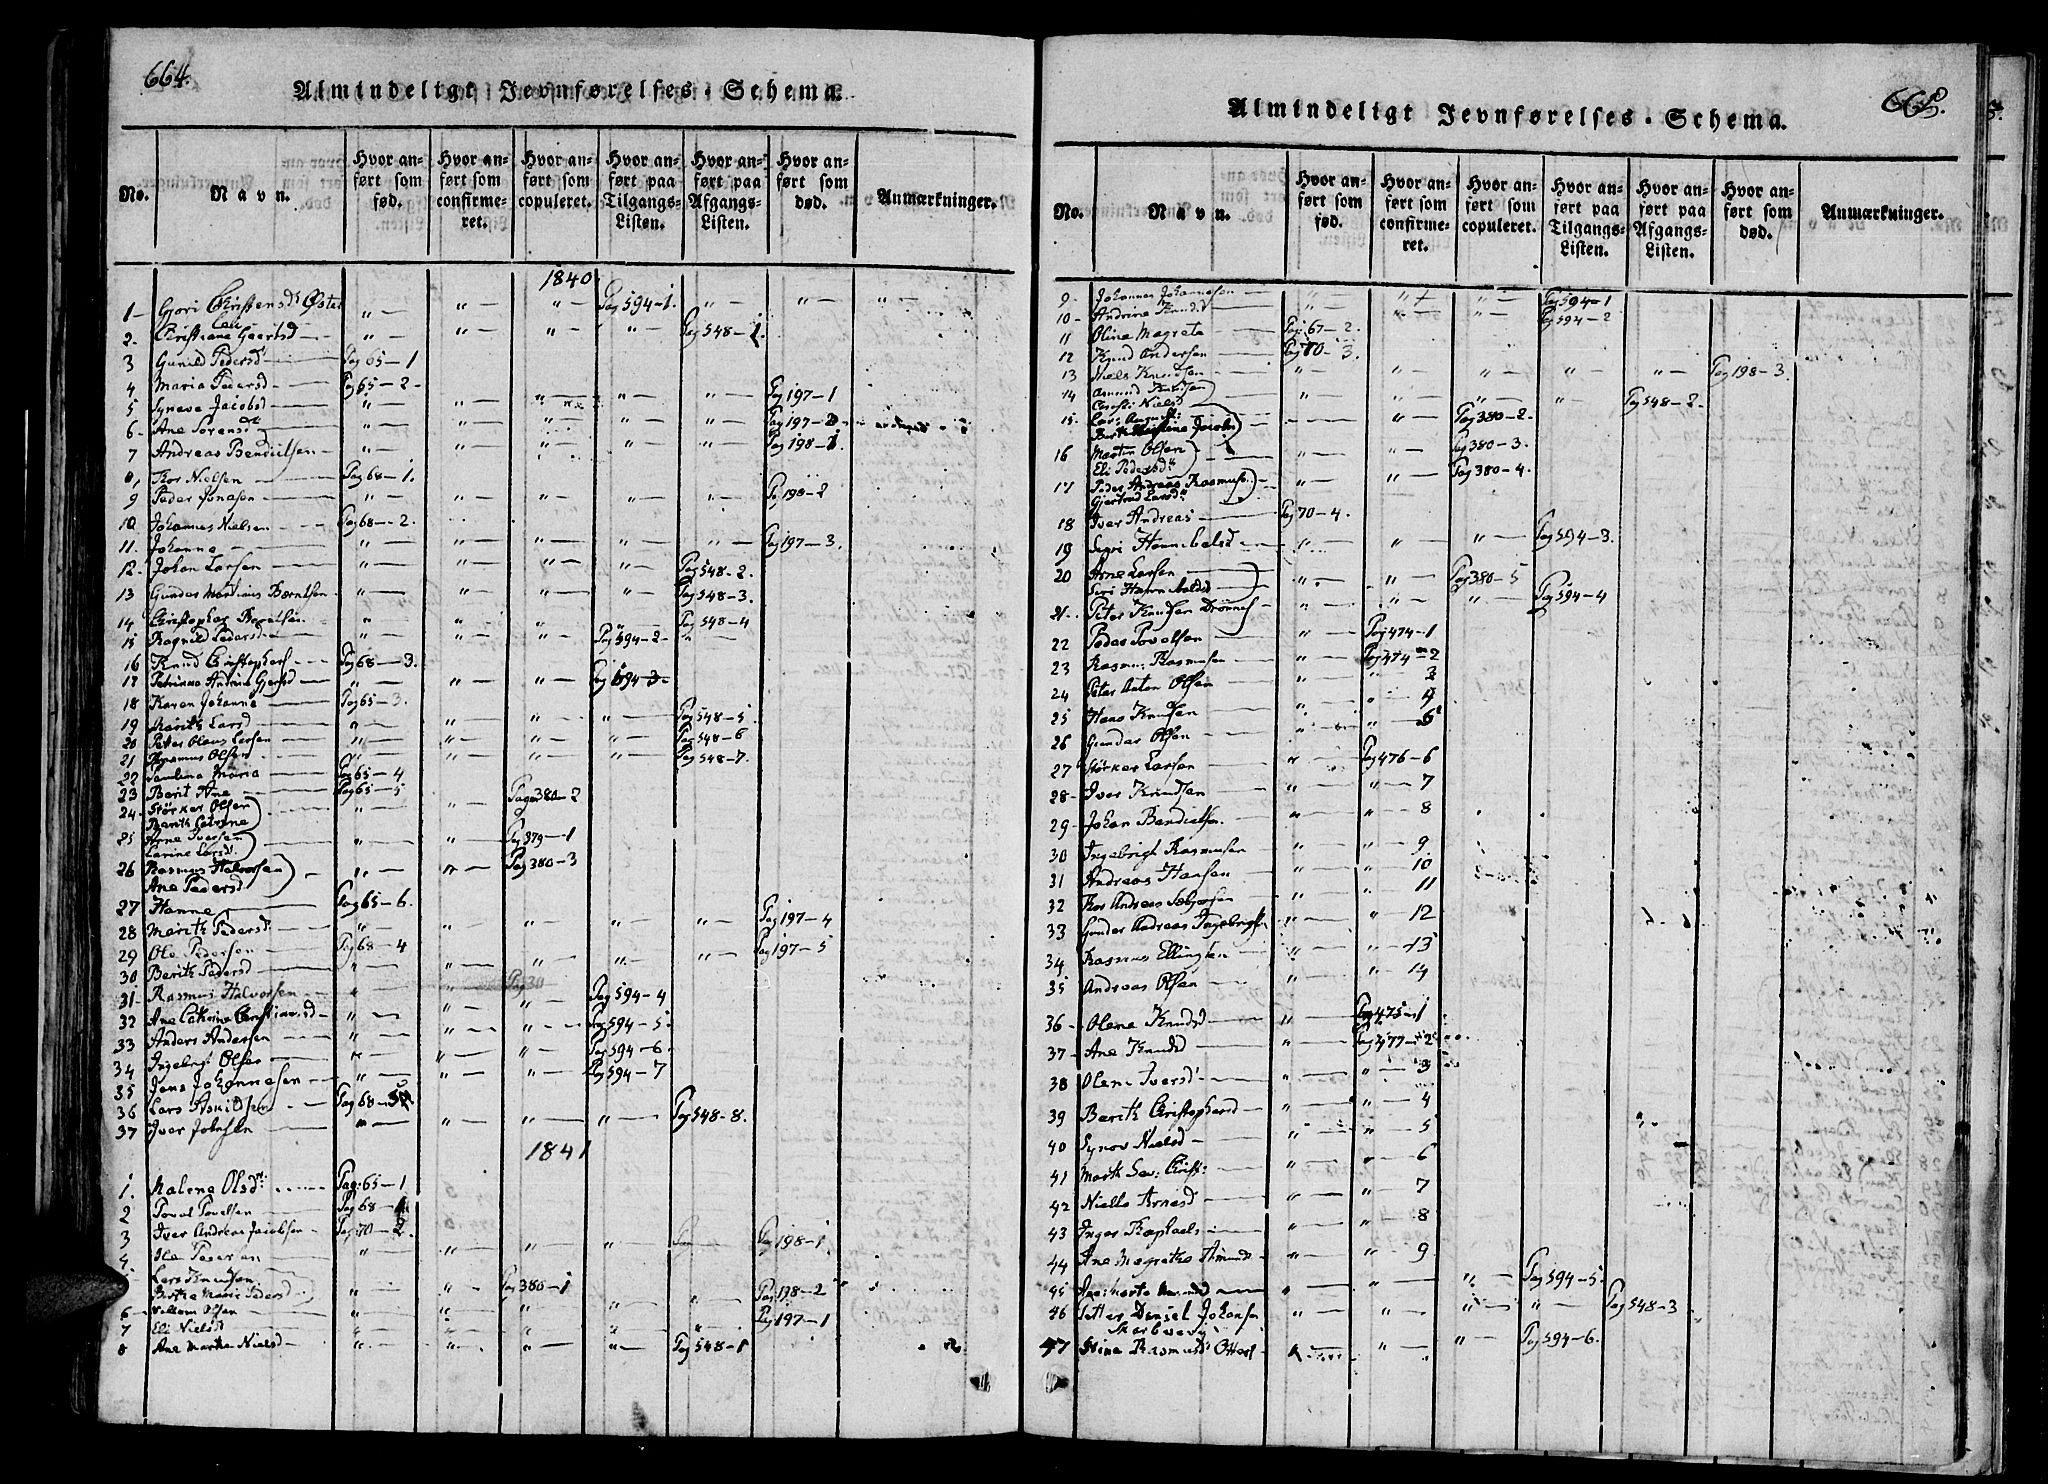 664.
Almindeligt Jevnførelses-Schema.
No. Navn. Hvor anført som fød. Hvor anført som confirmeret. Hvor anført som copuleret. Hvor anført paa Tilgangs-Listen. Hvor anført paa Afgangs-Listen. Hvor anført som død. Anmærkninger.
1840.
1 Gjøri Christensd Øster " " " Pag 594-1. " " "
2. Christiane Geertsd " " " " Pag 548-1.
3 Gunild Pedersd Pag 65-1
4 Maria Pedersd Pag 65-2
5 Synave Jacobsd " " " " " Pag 197-1
6 Ane Sørensd " " " " " Pag 197-2
7 Andreas Bendictsen " " " " " Pag 198-1
8 Kor Nielsen Pag 68-1.
9 Peder Jonasen " " " " " Pag 198-2
10 Johannes Nielsen Pag 68-2.
11. Johanne " " " " " Pag 197-3.
12 Johan Larsen " " " " Pag 548-2.
13 Gunder Martinus Berntsen " " " " Pag 548-3.
14 Christopher " " " " Pag 548-4
15 Ragnild Pedersd " " " Pag 594-2 "
16 Knud Christophers Pag 68-3.
17 Petrina Andrine Gjersd " " " Pag 594-3.
18 Karen Johanna Pag 65-3.
19 Marith Larsd " " " " Pag 548-5
20 Peter Olaus Larsen " " " " Pag 548-6
21 Rasmus Olsen " " " " Pag 548-7.
22 Maria Pag 65-4
23 Berit Ane Pag 65-5
24 Størker Olsen
Marith " " Pag 380-2
25 Arne Iversen
Larine Larsd " " Pag 379-1
26 Rasmus Halvorsen
Ane Pedersd " " Pag 380-3
27 Hanne Pag 65-6.
28 Marith Pedersd " " " " " Pag 197-4
29 Ole Pedersen Pag 68-4
30 Berith Pedersd " " " " " Pag 197-5
31 Rasmus Halvorsen " " " Pag 594-4
32 Ane Cathrine Christiansd " " " Pag 594-5
33 Anders Andersen " " " Pag 594-6
34 Ingebrigt Olsen " " " Pag 594-7
35 Jens Johannesen
36 Lars Askildsen Pag 68-5
37 Iver Johnsen " " " " Pag 548-8.
1841
1. Malene Olsd Pag: 65-1
2 Povel Povelsen Pag 68-1
3 Iver Andreas Jacobsen Pag 70-2
4 Ole Pedersen " " " " Pag 198-1
5 Lars Knudsen
Berthe Marie Pedersd " " Pag 380-1
6 Olsen " " " " " Pag 198-2
7 Eli Nielsd " " " " " Pag 197-1
8 Ane Marthe Nielsd " " " " Pag 548-1
665.
Almindeligt Jevnførelses-Schema.
No. Navn. Hvor anført som fød. Hvor anført som confirmeret. Hvor anført som copuleret. Hvor anført paa Tilgangs-Listen. Hvor anført paa Afgangs-Listen. Hvor anført som død. Anmærkninger.
9 Johannes Johannesen " " " Pag 594-1
10 Andrine Knudsd " " " Pag 594-2
11 Oline Magrete Pag: 67-2.
12 Knud Andersen Pag 70-3.
13 Niels Knudsen " " " " " Pag 198-3.
14 Amund Knudsen
Nielsd " " " " Pag 548-2.
15 Lars
Berthe Jacobs " Pag 380-2.
16 Morten Olsen
Eli Pedersd " " Pag 380-3.
17 Peder Andreas Rasmuss
Gjertrud Larsd " " Pag 380-4.
18 Iver Andreas Pag 70-4.
19 Segri Hannibalsd " " " Pag 594-3.
20 Arne Larsen
Siri Hannibalsd " " Pag 380-5
21 Peter Knudsen Drønnes " " " Pag 594-4
22 Peder Povelsen " Pag 474-1
23 Rasmus Rasmusen " Pag 474-2
24 Peter Anton Olsen " " 3
25 Hans Knudsen " " 4
26 Gunder Olsen " " 5
27 Størker Larsen " Pag 476-6
28 Iver Knudsen " " 7
29 Johan Bendictsen " " 8
30 Ingebrigt Rasmusen " " 9.
31 Andreas Hansen " " 10
32 Kor Andreas " " 11
33 Gunder Andreas Ingebrigts " " 12
34 Rasmus Ellingsen " " 13
35 Andreas Olsen " " 14
36 Olene Knudsd " Pag 475-1
37 Ane Knudsd " Pag 477-2
38 Olene Iversd " " 3
39 Berith Christophersd " " 4
40 Synov Nielsd " " 5
41 Marth Sev: Christ: " " 6
42 Niells Arnesd " " 7
43 Inger Raphaels " " 8
44 Ane Magrethe Amunds " " 9
45 Marta " " " Pag 594-5.
46 Petter Daniel Johansen " " " " Pag 548-3
47 Stine Rasmusd Otters " " " Pag 594-6.